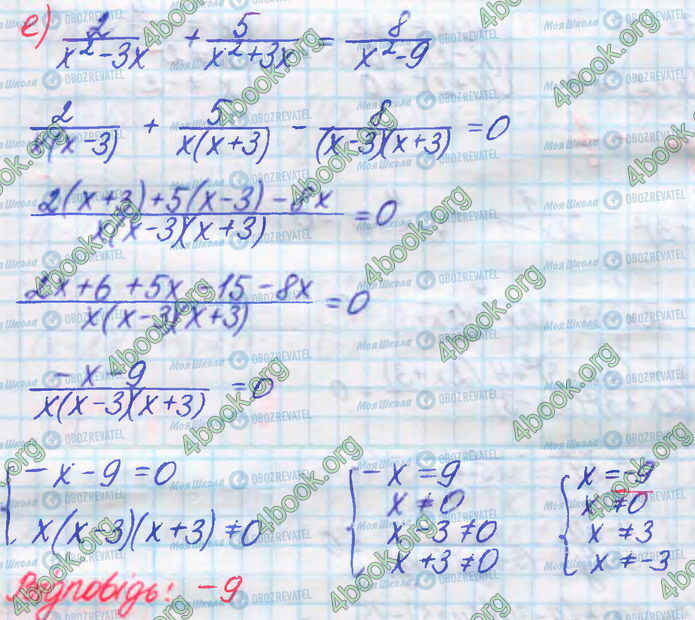 е) 2/(x²-3x) + 5/(x²+3x) = 8/(x²-9)
2/(x(x-3)) + 5/(x(x+3)) - 8/((x-3)(x+3)) = 0
(2(x+3)+5(x-3)-8x)/(x(x-3)(x+3)) = 0
(2x+6+5x-15-8x)/(x(x-3)(x+3)) = 0
(-x-9)/(x(x-3)(x+3)) = 0
{ -x-9=0
x(x-3)(x+3)≠0
{ -x=9
x≠0
x-3≠0
x+3≠0
{ x=-9
x≠0
x≠3
x≠-3
Відповідь: -9
4book.org
Моя Школа
OBOZREVATEL